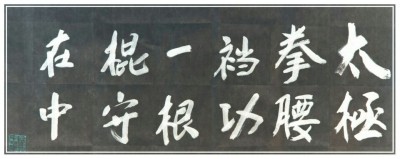 太極
拳腰
襠功
一根
棍守
在中